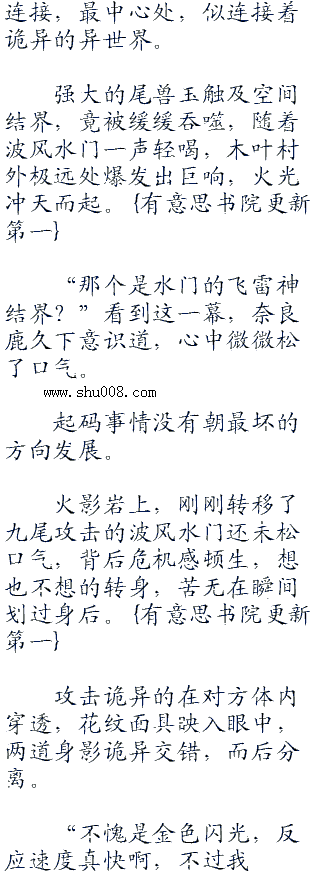 连接，最中心处，似连接着
诡异的异世界。
强大的尾兽玉触及空间
结界，竟被缓缓吞噬，随着
波风水门一声轻喝，木叶村
外极远处爆发出巨响，火光
冲天而起。{有意思书院更新
第一}
“那个是水门的飞雷神
结界？”看到这一幕，奈良
鹿久下意识道，心中微微松
了口气。
www.shu008.com
起码事情没有朝最坏的
方向发展。
火影岩上，刚刚转移了
九尾攻击的波风水门还未松
口气，背后危机感顿生，想
也不想的转身，苦无在瞬间
划过身后。{有意思书院更新
第一}
攻击诡异的在对方体内
穿透，花纹面具映入眼中，
两道身影诡异交错，而后分
离。
“不愧是金色闪光，反
应速度真快啊，不过我